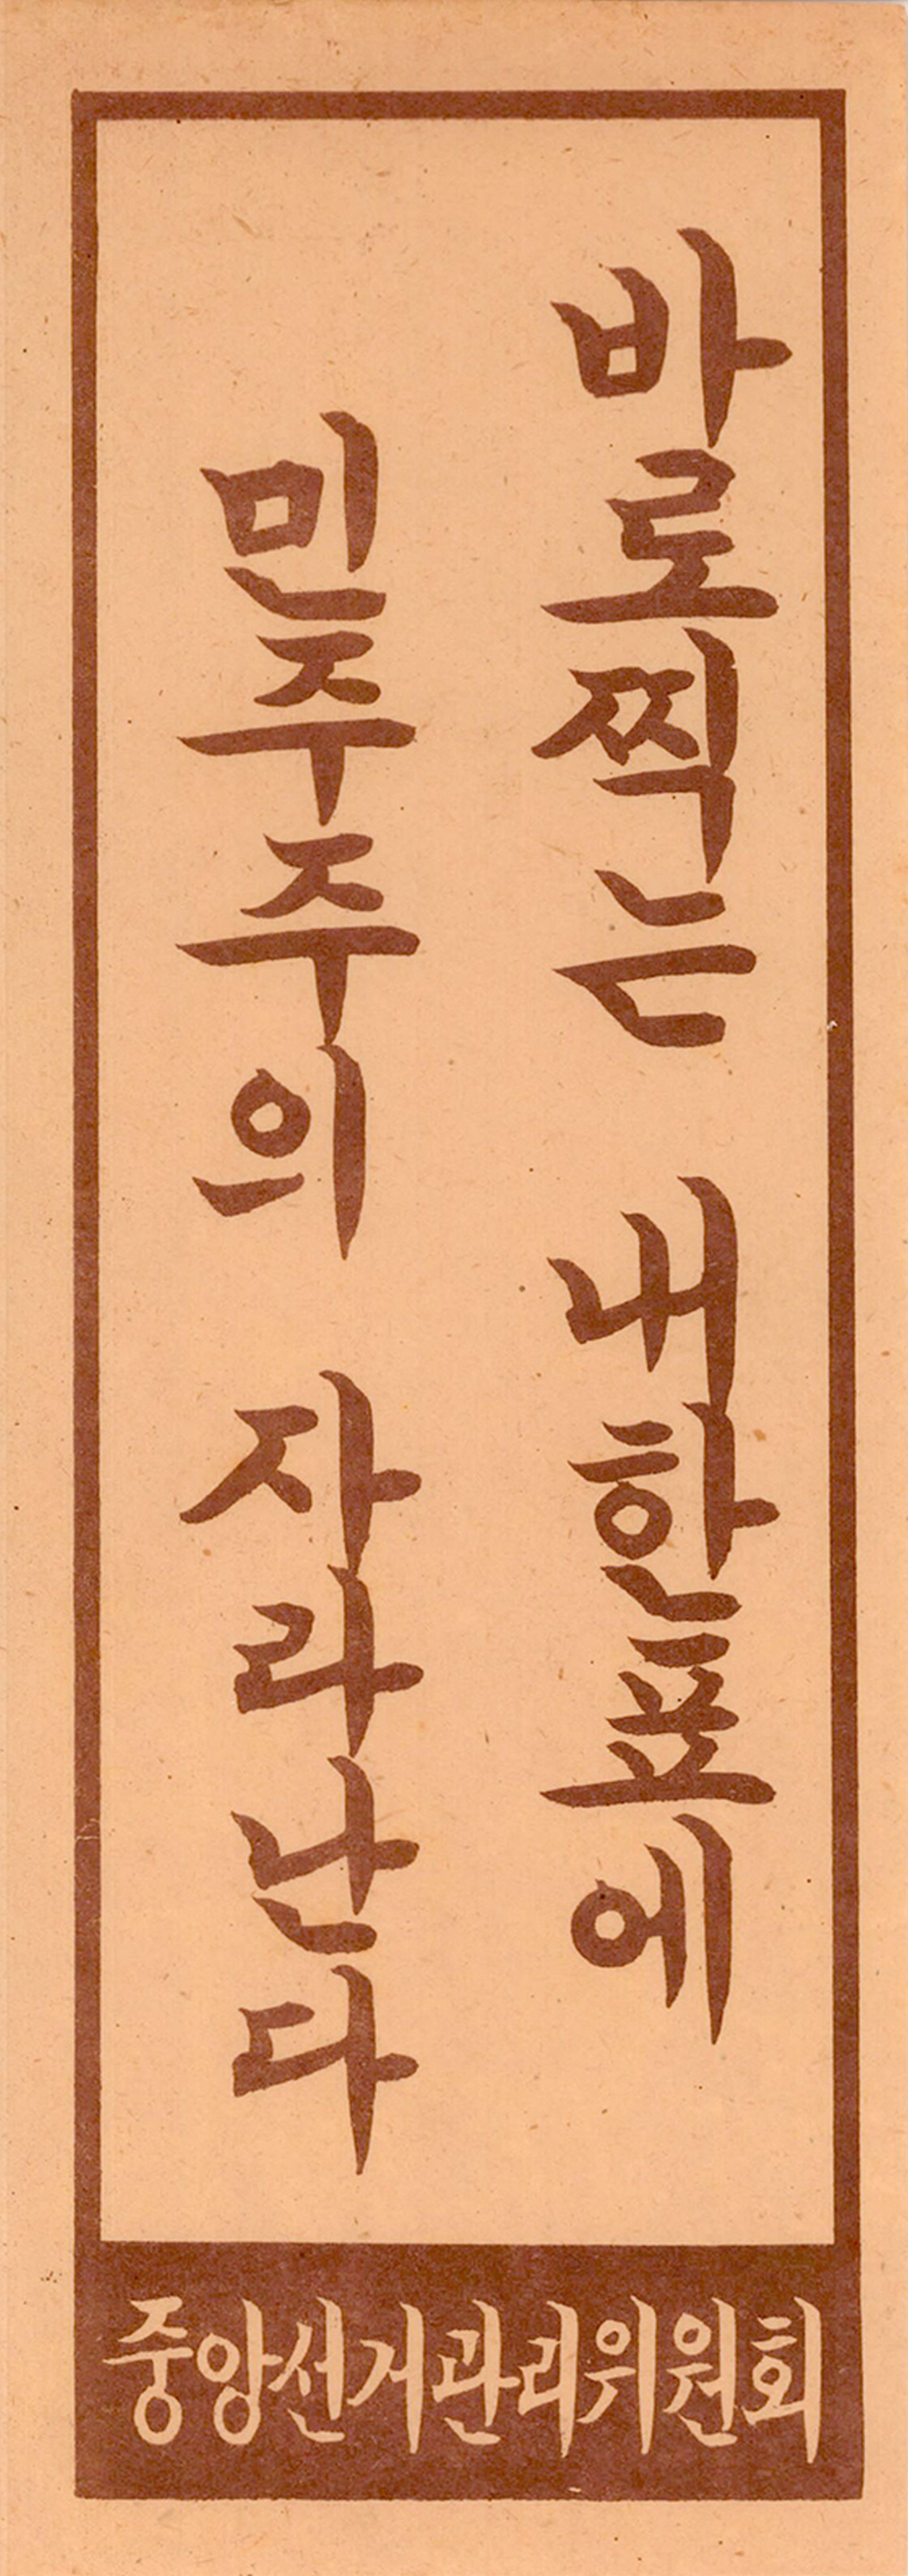 바로찍는 내한표에
민주주의 자라난다
중앙선거관리위원회